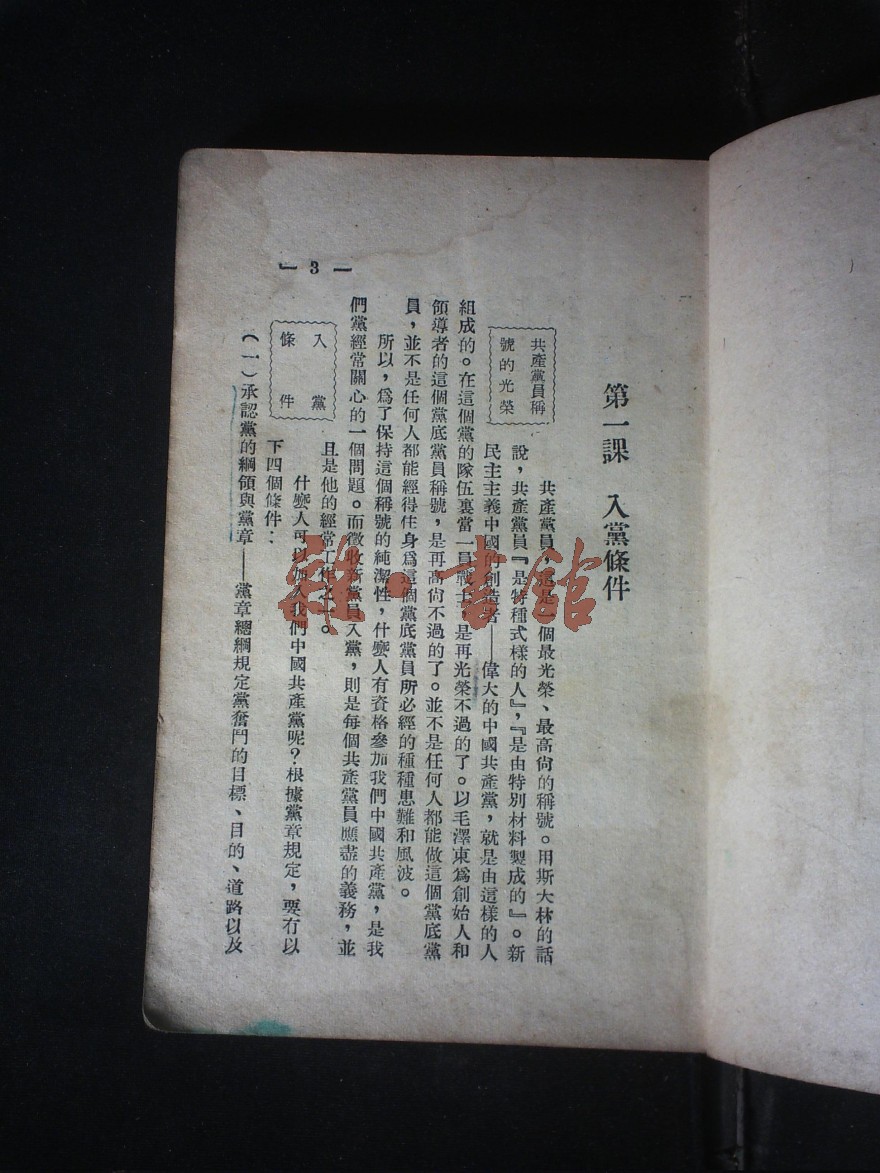 第一課　入黨條件
共產黨員稱
號的光榮
共產黨員，這是一個最光榮、最高尙的稱號。用斯大林的話
說，共產黨員『是特種式樣的人』，『是由特別材料製成的』。新
民主主義中國的創造者——偉大的中國共產黨，就是由這樣的人
組成的。在這個黨的隊伍裏當一員戰士，是再光榮不過的了。以毛澤東爲創始人和
領導者的這個黨底黨員稱號，是再高尙不過的了。並不是任何人都能做這個黨底黨
員，並不是任何人都能經得住身爲這個黨底黨員所必經的種種患難和風波。
所以，爲了保持這個稱號的純潔性，什麼人有資格參加我們中國共產黨，是我
們黨經常關心的一個問題。而徵收新黨員入黨，則是每個共產黨員應盡的義務，並
且是他的經常工作之一。
入黨
條件
什麼人可以加入我們中國共產黨呢？根據黨章規定，要有以
下四個條件：
（一）承認黨的綱領與黨章——黨章總綱規定黨奮鬥的目標、目的、道路以及
— 3 —
雜·書館